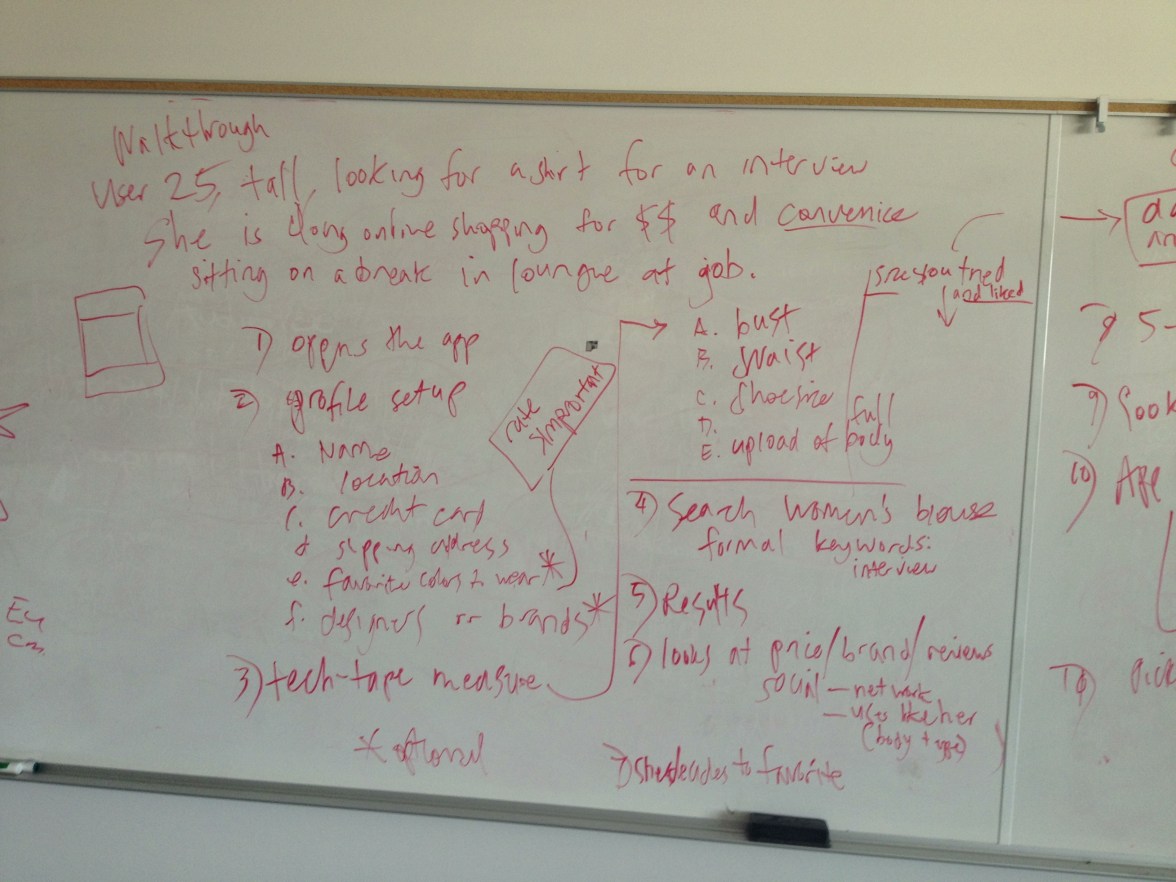 Walkthrough
User 25, tall, looking for a shirt for an interview
She is doing online shopping for $$ and convenice
sitting on a break in loungue at job.
1) opens the app
2) profile setup
A. Name
B. location
C. credit card
d shipping address
e. favorite colors to wear*
f. designers or brands*
3) tech-tape measure
* optional
rate
important
you tried
and liked
A. bust
B. Waist
C. Shoesize
D.
E. upload of full body
4) Search Women's blouse
formal keywords:
interview
5) Results
6) looks at price/brand/reviews
social - network
- users like her
(body type)
7) She decides to favorite
9) look
10)